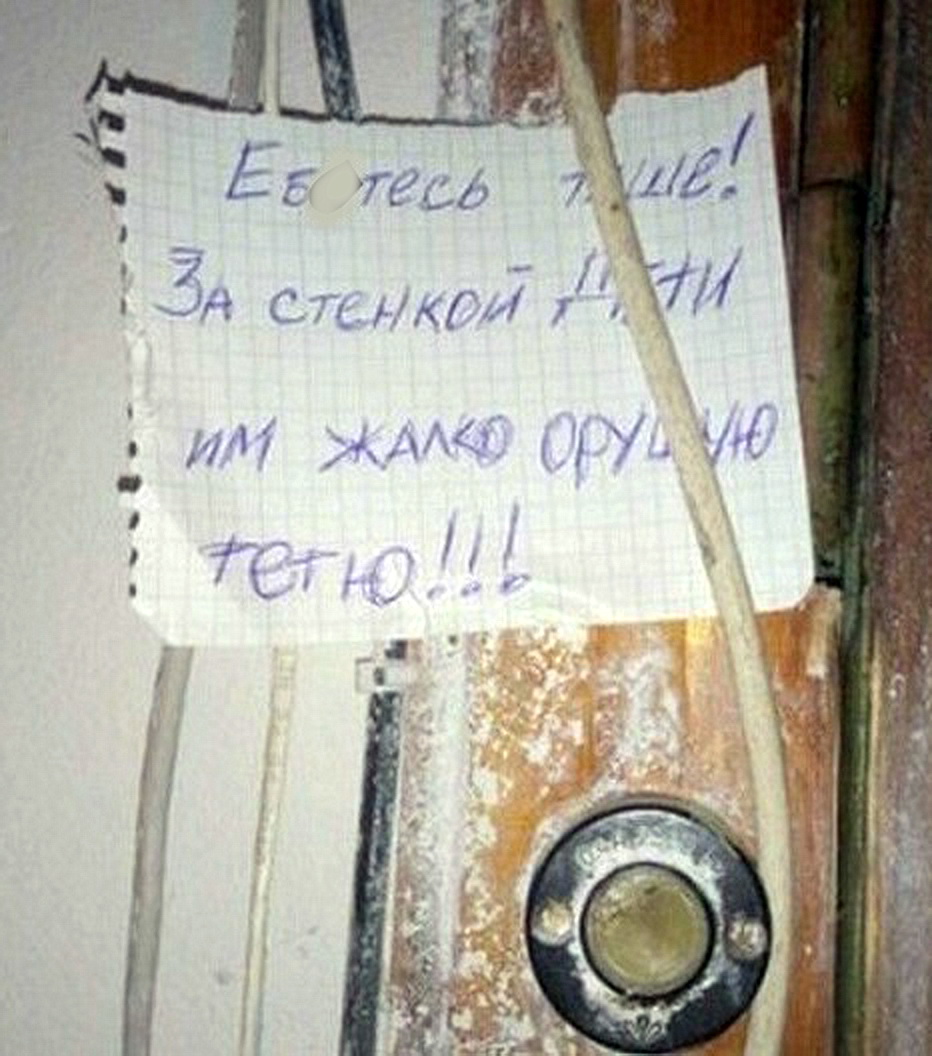 Еб тесь тише!
За стенкой Дети
им жалко орущую
тетю!!!